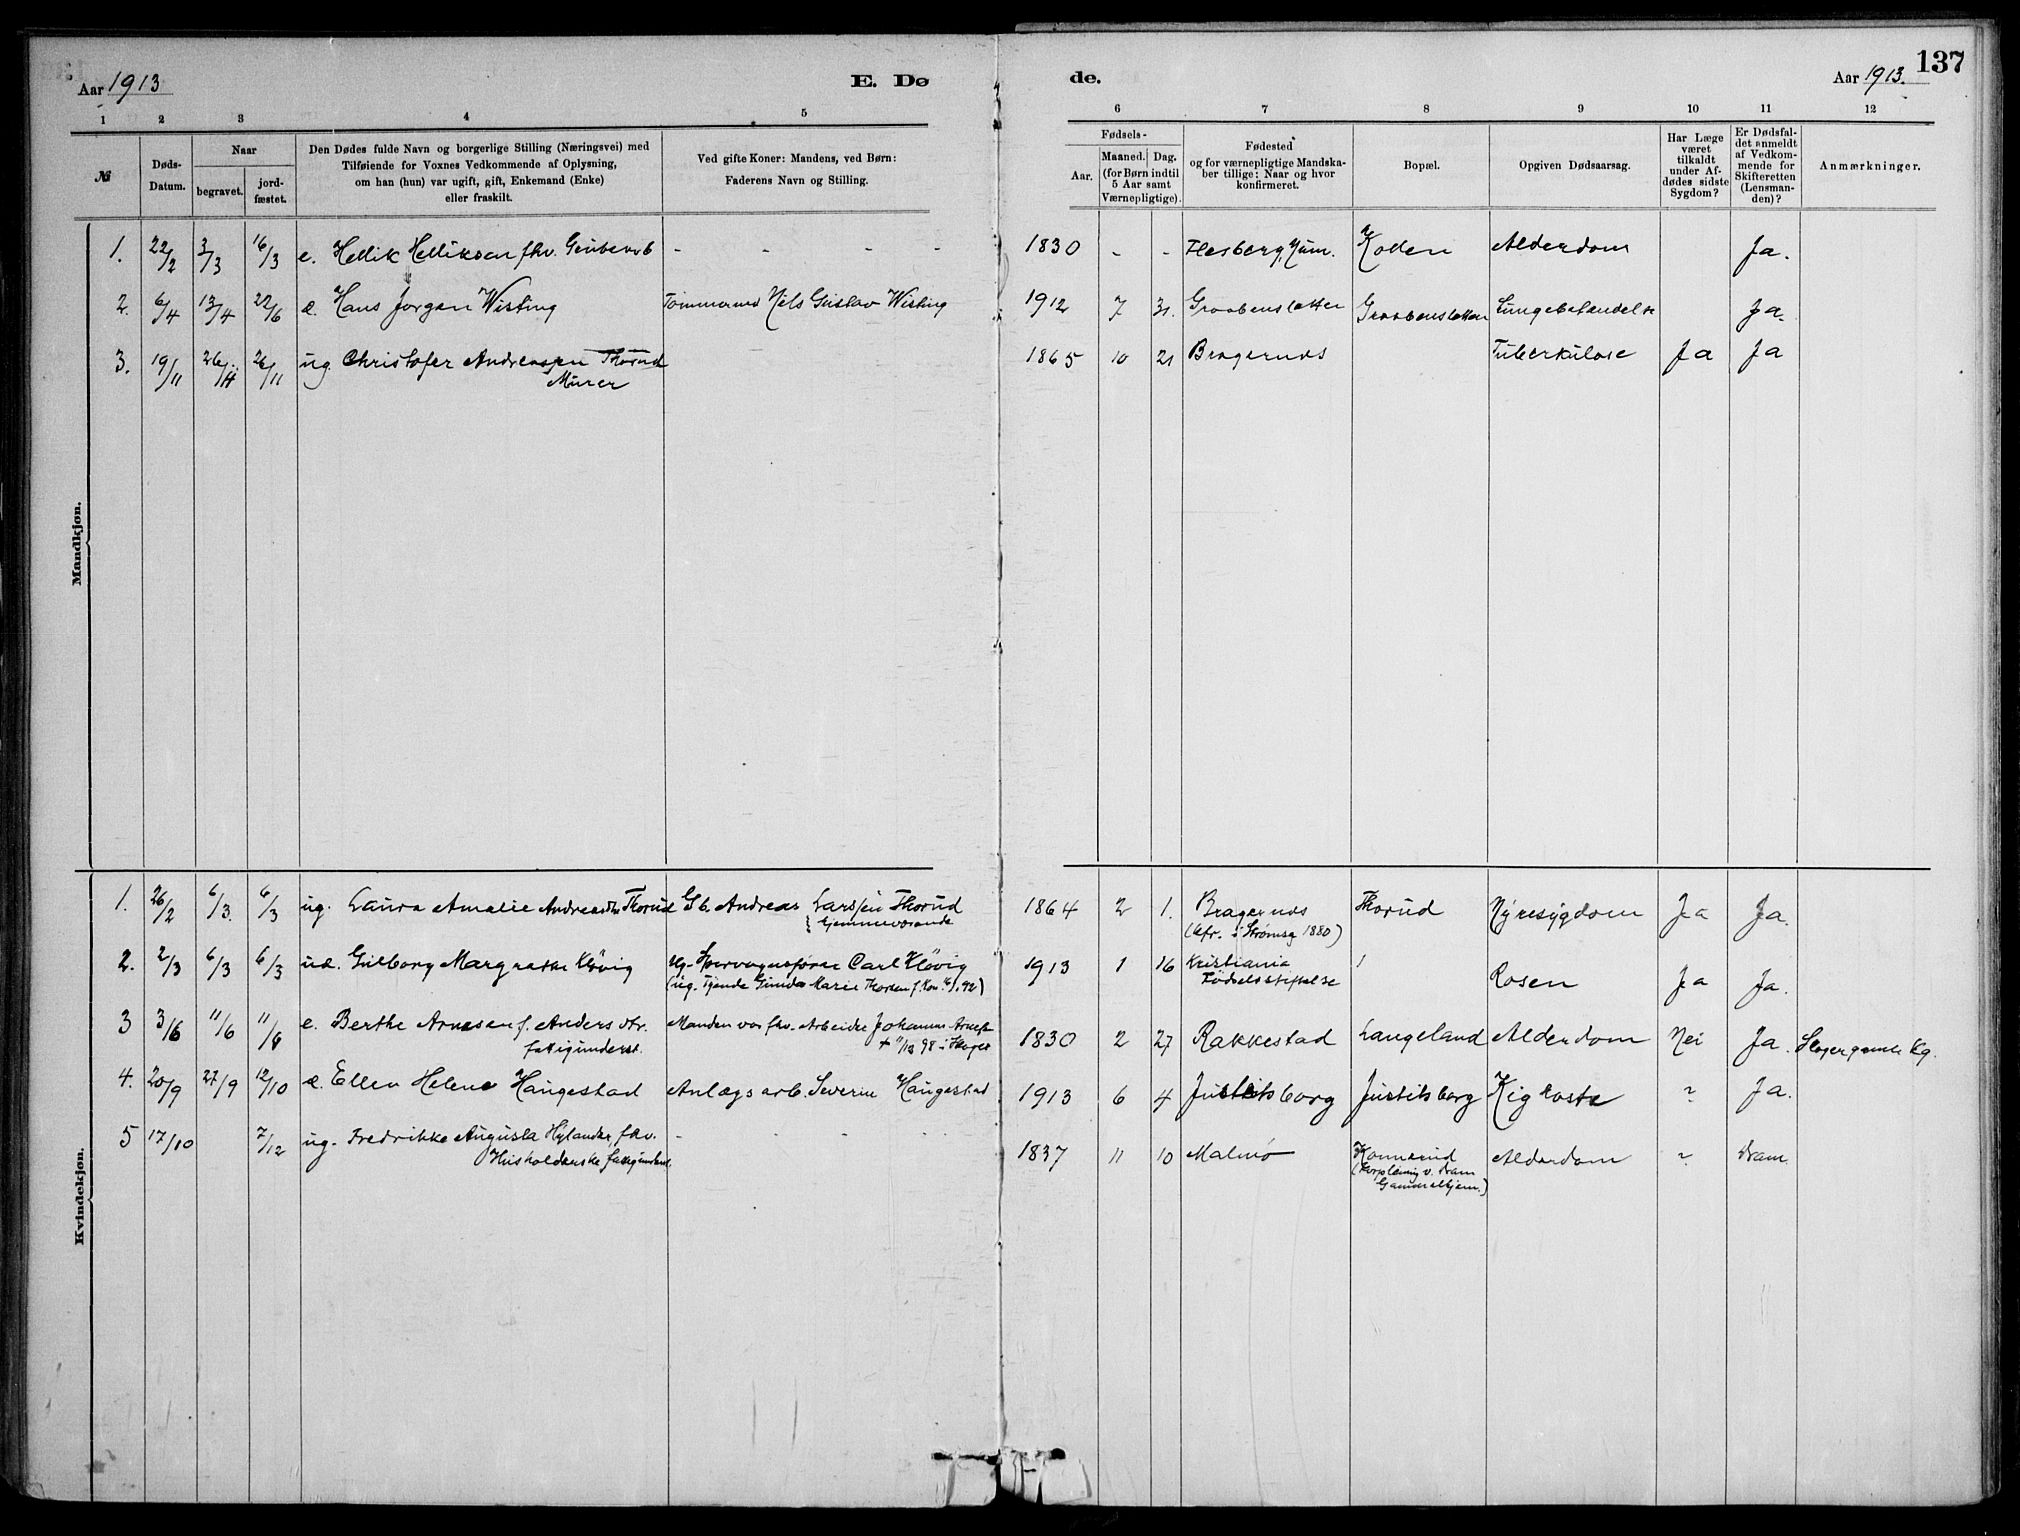 137
Aar 1913
E. Dø
de.
Aar 1913.
1 2 3 4 5 6 7 8 9 10 11 12
№
Døds-
Datum.
Naar
begravet.
jord-
fæstet.
Den Dødes fulde Navn og borgerlige Stilling (Næringsvei) med
Tilføiende for Voxnes Vedkommende af Oplysning,
om han (hun) var ugift, gift, Enkemand (Enke)
eller fraskilt.
Ved gifte Koner: Mandens, ved Børn:
Faderens Navn og Stilling.
Fødsels-
Aar.
Maaned. Dag.
(for Børn indtil
5 Aar samt
Værnepligtige).
Fødested
og for værnepligtige Mandska-
ber tillige: Naar og hvor
konfirmeret.
Bopæl.
Opgiven Dødsaarsag.
Har Læge
været
tilkaldt
under Af-
dødes sidste
Sygdom?
Er Dødsfal-
det anmeldt
af Vedkom-
mende for
Skifteretten
(Lensman-
den)?
Anmærkninger.
Mandkjøn.
1. 22/2 3/3 16/3 e. Hellik Helliksen fhv. Grubearb - - - - 1830 - - Flesberg, Num. Koden Alderdom Ja.
2. 6/4 13/4 22/6 æ. Hans Jørgen Wisting Tømmermd Nels Gustav Wisting 1912 7 31. Graabensletten Graabensletten Lungebetændelse Ja.
3. 19/11 26/11 26/11 ug. Christofer Andreassen Thorud 1865 10 21 Bragernæs Tuberkulose Ja Ja
Murer
Kvindekjøn.
1. 26/2 6/3. 6/3 ug. Laura Amalie Andreasdtr Thorud Gb. Andreas Larssen Thorud 1864 2 1. Bragernæs Thorud Nyresygdom Ja Ja.
Hjemmeværende (kfr. i Strømsg 1880)
2. 2/3 6/3 6/3 uæ. Gulborg Margrethe Kløvig ug. Sporvognsfører Carl Kløvig 1913 1 16 Kristiania Rosen Ja Ja.
(ug. Tjende Gunda Marie Thorsen f. Kon. 92) Fødselsstiftelse
3 3/6 11/6 11/6 e. Berthe Arnesen f. Andersdtr. Manden var fhv. Arbeider Johannes 1830 2 27 Rakkestad Langeland Alderdom Nei Ja. Skoger gamle Kg.
fattigunderst. + 11/12 98 i Skoger
4. 20/9 27/9 12/10 æ. Ellen Helene Haugestad Anlægsarb. Severin Haugestad 1913 6 4 Justitsborg Justitsborg Kighoste ? Ja.
5 17/10 7/12 ug. Fredrikke Augusta Hylander, fhv. - - - - 1837 11 10 Malmø Konnerud Alderdom ? Dram.
Husholderske fattigunderst. (Forpleining v. Dram
Gammelhjem.)